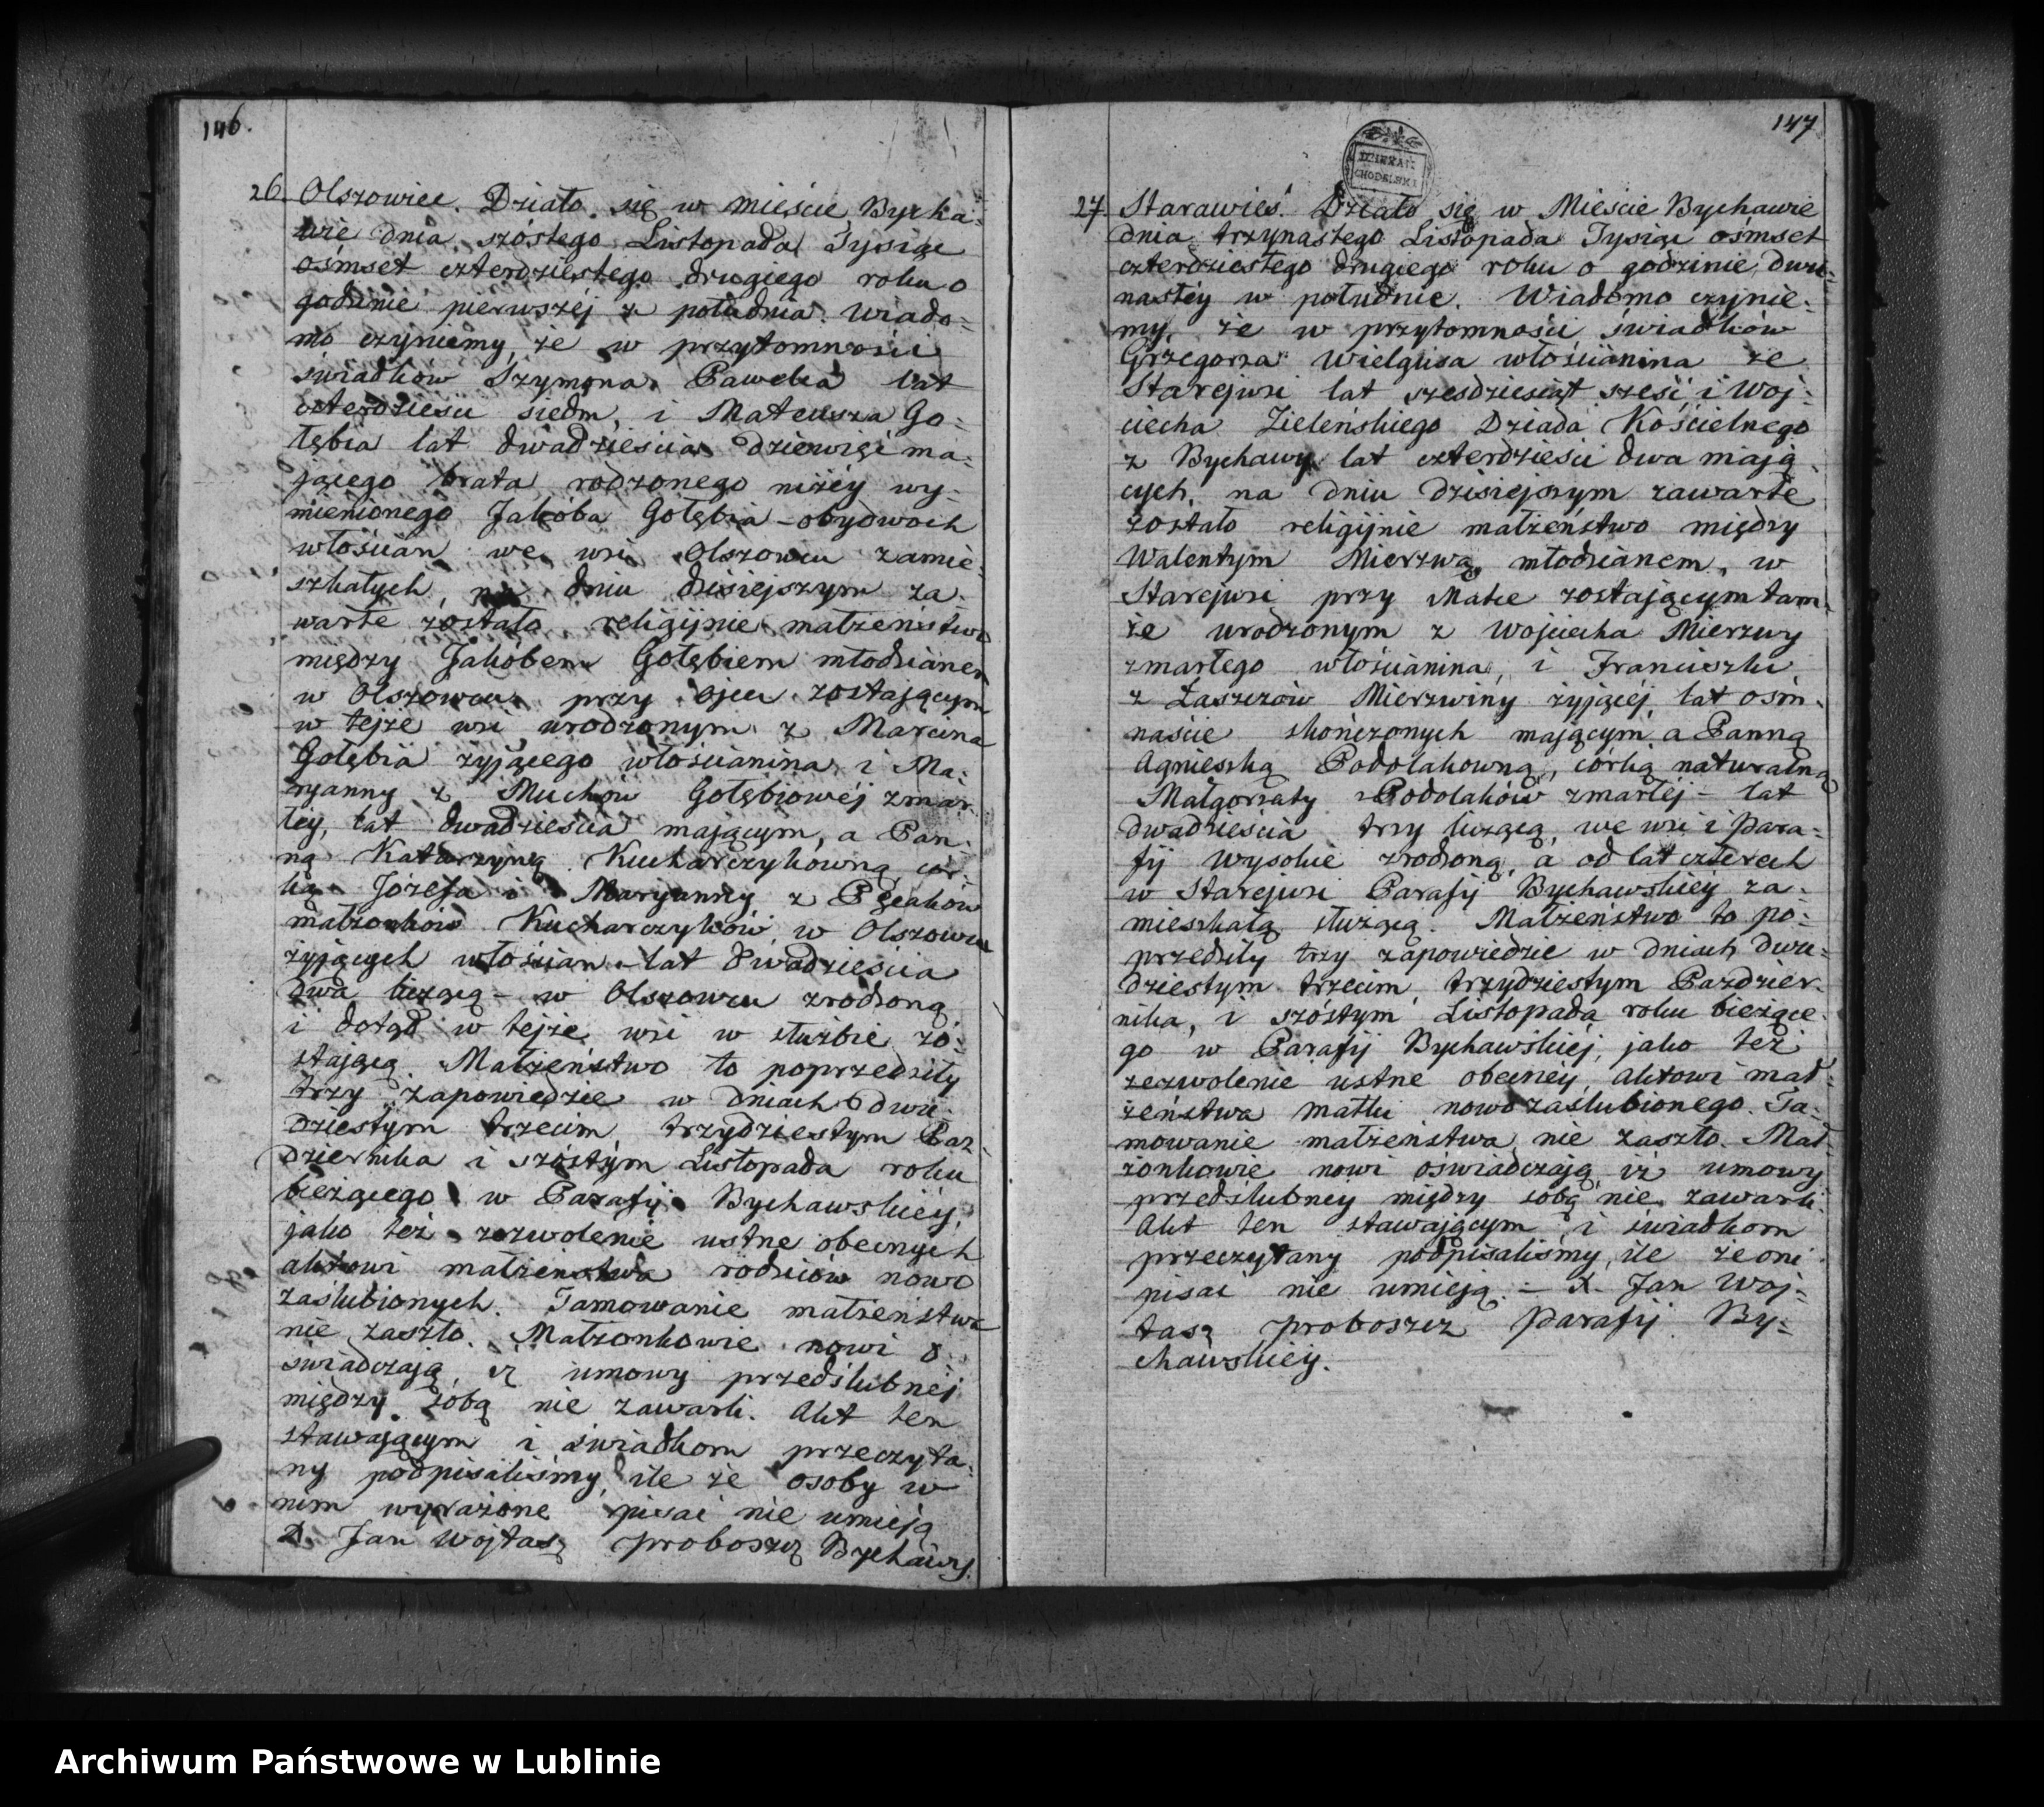 146.
26. Olszowiec. Działo się w mieście Bycha-
wie dnia szostego Listopada Tysiąc
ośmset czterdziestego drugiego roku o
godzinie pierwszéj z południa. Wiado-
mo czyniemy, że w przytomności
świadków Szymona Pawelca lat
czterdzieści siedm, i Mateusza Go-
łębia lat dwadzieścia dziewięć ma-
jącego brata rodzonego niżéy wy-
mienionego Jakóba Gołębia – obydwoch
włościan we wsi Olszowcu zamie-
szkałych, na dniu dzisiejszym za-
warte zostało religijnie małżeństwo
między Jakóbem Gołębiem młodzianem
w Olszowcu przy ojcu zostającym
w tejże wsi urodzonym z Marcina
Gołębia żyjącego włościanina i Ma-
ryanny z Muchów Gołębiowéj zmar-
łéy, lat dwadzieścia mającym, a Pan-
ną Katarzyną Kucharczykówną cór-
ką Józefa i Maryanny z Pęcaków
małżonków Kucharczyków w Olszowcu
żyjących włościan – lat dwadzieścia
dwa liczącą – w Olszowcu zrodzoną
i dotąd w tejże wsi w służbie zo-
stającą. Małżeństwo to poprzedziły
trzy zapowiedzie w dniach dwu-
dziestym trzecim, trzydziestym Paz-
dziernika i szóstym Listopada roku
bieżącego w Parafij Bychawskiéy,
jako też zezwolenie ustne obecnych
aktowi małżeństwa rodziców nowo
zaślubionych. Tamowanie małżeństwa
nie zaszło. Małżonkowie nowi o-
świadczają iż umowy przedślubnéj
między sobą nie zawarli. Akt ten
stawającym i świadkom przeczyta-
ny podpisaliśmy, ile że osoby w
nim wyrażone pisać nie umieją
X. Jan Wojtasz proboszcz Bychaws.
147
DZIEKAN
CHODELSKI
27. Starawieś. Działo się w Mieście Bychawie
dnia trzynastego Listopada Tysiąc ośmset
czterdziestego drugiego roku o godzinie dwu-
nastéy w południe. Wiadomo czynie-
my, że w przytomności świadków
Grzegorza Wielgusa włościanina ze
Starejwsi lat sześdziesiąt sześć, i Woj-
ciecha Zieleńskiego Dziada Kościelnego
z Bychawy lat czterdzieści dwa mają-
cych, na dniu dzisiejszym zawarte
zostało religijnie małżeństwo między
Walentym Mierzwą młodzianem, w
Starejwsi przy Matce zostającym tam-
że urodzonym z Wojciecha Mierzwy
zmarłego włościanina, i Franciszki
z Łaszczów Mierzwiny żyjącéj, lat ośm-
naście skończonych mającym, a Panną
Agnieszką Podolakowną, córką naturalną
Małgorzaty Podolaków zmarłéj – lat
dwadzieścia trzy liczącą, we wsi i Para-
fij Wysokie zrodzoną, a od lat czterech
w Starejwsi Parafij Bychawskiéy za-
mieszkałą służącą. Małżeństwo to po-
przedziły trzy zapowiedzie w dniach dwu-
dziestym trzecim, trzydziestym Pazdzier-
nika, i szóstym Listopada roku bieżące-
go w Parafij Bychawskiéj, jako też
zezwolenie ustne obecnéy aktowi mał-
żeństwa matki nowo zaślubionego. Ta-
mowanie małżeństwa nie zaszło. Mał-
żonkowie nowi oświadczają, iż umowy
przedślubnéy między sobą nie zawarli.
Akt ten stawającym i świadkom
przeczytany podpisaliśmy, ile że oni
pisać nie umieją. – X. Jan Woj-
tasz proboszcz Parafij By-
chawskiéy.
Archiwum Państwowe w Lublinie